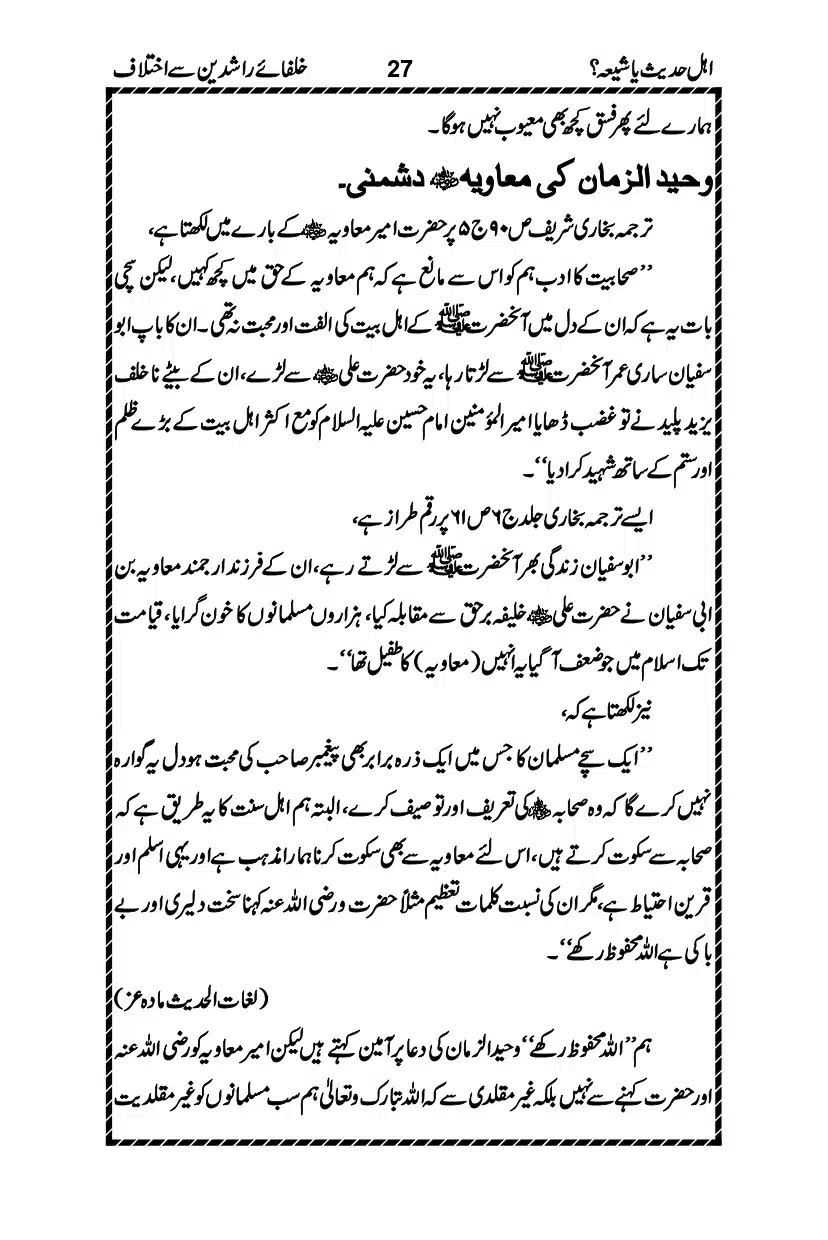 اہل حدیث یا شیعہ؟ 27 خلفائے راشدین سے اختلاف
ہمارے لئے پھر فسق کچھ بھی معیوب نہیں ہوگا۔
وحید الزمان کی معاویہؓ دشمنی۔
ترجمہ بخاری شریف ص ۹۰ ج ۵ پر حضرت امیر معاویہؓ کے بارے میں لکھتا ہے،
’’صحابیت کا ادب ہم کو اس سے مانع ہے کہ ہم معاویہ کے حق میں کچھ کہیں، لیکن سچی
بات یہ ہے کہ ان کے دل میں آنحضرت ﷺ کے اہل بیت کی الفت اور محبت نہ تھی۔ ان کا باپ ابو
سفیان ساری عمر آنحضرت ﷺ سے لڑتا رہا، یہ خود حضرت علیؓ سے لڑے، ان کے بیٹے ناخلف
یزید پلید نے تو غضب ڈھایا امیر المؤمنین امام حسین علیہ السلام کو مع اکثر اہل بیت کے بڑے ظلم
اور ستم کے ساتھ شہید کرا دیا‘‘۔
ایسے ترجمہ بخاری جلد ج ۶ ص ۶۱ پر رقم طراز ہے،
’’ابوسفیان زندگی بھر آنحضرت ﷺ سے لڑتے رہے، ان کے فرزند ارجمند معاویہ بن
ابی سفیان نے حضرت علیؓ خلیفہ برحق سے مقابلہ کیا، ہزاروں مسلمانوں کا خون گرایا، قیامت
تک اسلام میں جو ضعف آ گیا یہ انہیں (معاویہ) کا طفیل تھا‘‘۔
نیز لکھتا ہے کہ،
’’ایک سچے مسلمان کا جس میں ایک ذرہ برابر بھی پیغمبر صاحب کی محبت ہو دل یہ گوارہ
نہیں کرے گا کہ وہ صحابہؓ کی تعریف اور توصیف کرے، البتہ ہم اہل سنت کا یہ طریق ہے کہ
صحابہ سے سکوت کرتے ہیں، اس لئے معاویہ سے بھی سکوت کرنا ہمارا مذہب ہے اور یہی اسلم اور
قرین احتیاط ہے، مگر ان کی نسبت کلمات تعظیم مثلاً حضرت و رضی اللہ عنہ کہنا سخت دلیری اور بے
باکی ہے اللہ محفوظ رکھے‘‘۔
(لغات الحدیث مادہ عز)
ہم ’’اللہ محفوظ رکھے‘‘ وحید الزمان کی دعا پر آمین کہتے ہیں لیکن امیر معاویہ کو رضی اللہ عنہ
اور حضرت کہنے سے نہیں بلکہ غیر مقلدی سے کہ اللہ تبارک وتعالیٰ ہم سب مسلمانوں کو غیر مقلدیت